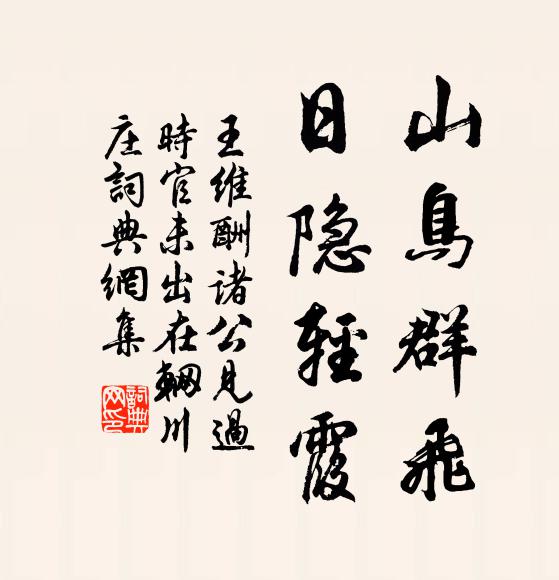 山鳥群飛
日隐輕霞
王維酬諸公見過
時官未出在輞川
庄詞典網集
詞典网印